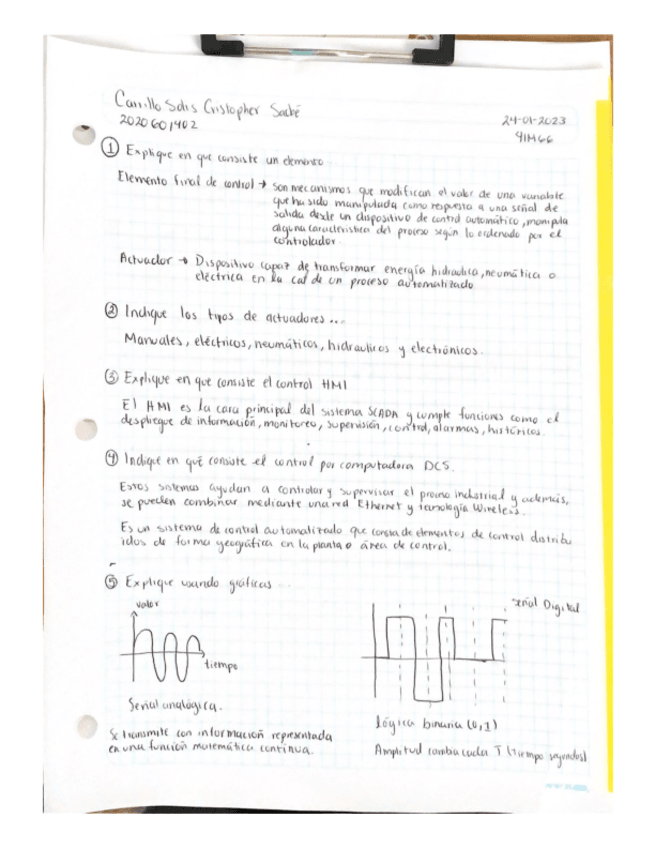 Carrillo Solis Cristopher
2020601402
24-01-2023
① Explique en que consiste un elemento
Elemento final de control → son mecanismos que modifican el valor de una variable
que ha sido manipulada como respuesta a una señal de
salida desde un dispositivo de control automático, manipula
alguna característica del proceso según lo ordenado por el
controlador.
Actuador → Dispositivo capaz de transformar energía hidraulica, neumática o
eléctrica en la cal de un proceso automatizado
② Indique los tipos de actuadores...
Manuales, eléctricos, neumáticos, hidraulicos y electrónicos.
③ Explique en que consiste el control HMI
El HMI es la cara principal del sistema SCADA y cumple funciones como el
despliegue de información, monitoreo, supervisión, control, alarmas, históricos.
④ Indique en qué consiste el control por computadora DCS.
Estos sistemas ayudan a controlar y supervisar el proceso industrial y además,
se pueden combinar mediante una red Ethernet y tecnología Wireless.
Es un sistema de control automatizado que consta de elementos de control distribu
idos de forma geográfica en la planta o área de control.
⑤ Explique usando gráficas...
valor
tiempo
Señal analógica.
Se transmite con información representada
en una función matemática continua.
señal Digital
lógica binaria (0,1)
Amplitud cambia cada T (tiempo segundos)